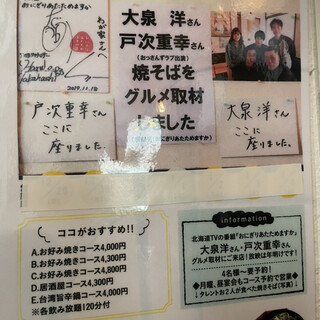 わが家さんへ
2019.11.18
大泉 洋さん
戸次重幸さん
(おっさんずラブ出演)
焼そばを
グルメ取材
しました
戸次重幸さん
ここに
座りました。
大泉洋さん
ここに
座りました。
ココがおすすめ!!
A.お好み焼きコース4,000円
B.お好み焼きコース4,300円
C.お好み焼きコース4,800円
D.居酒屋コース4,300円
E.台湾旨辛鍋コース4,000円
※各飲み放題120分付
information
北海道TVの番組「おにぎりあたためますか」
大泉洋さん・戸次重幸さん
グルメ取材にご来店!放映は年明けです!
4名様~要予約!
◆月曜、昼宴会もコース予約で営業◆
↓タレントお2人が食べた焼きそば(写真)↓